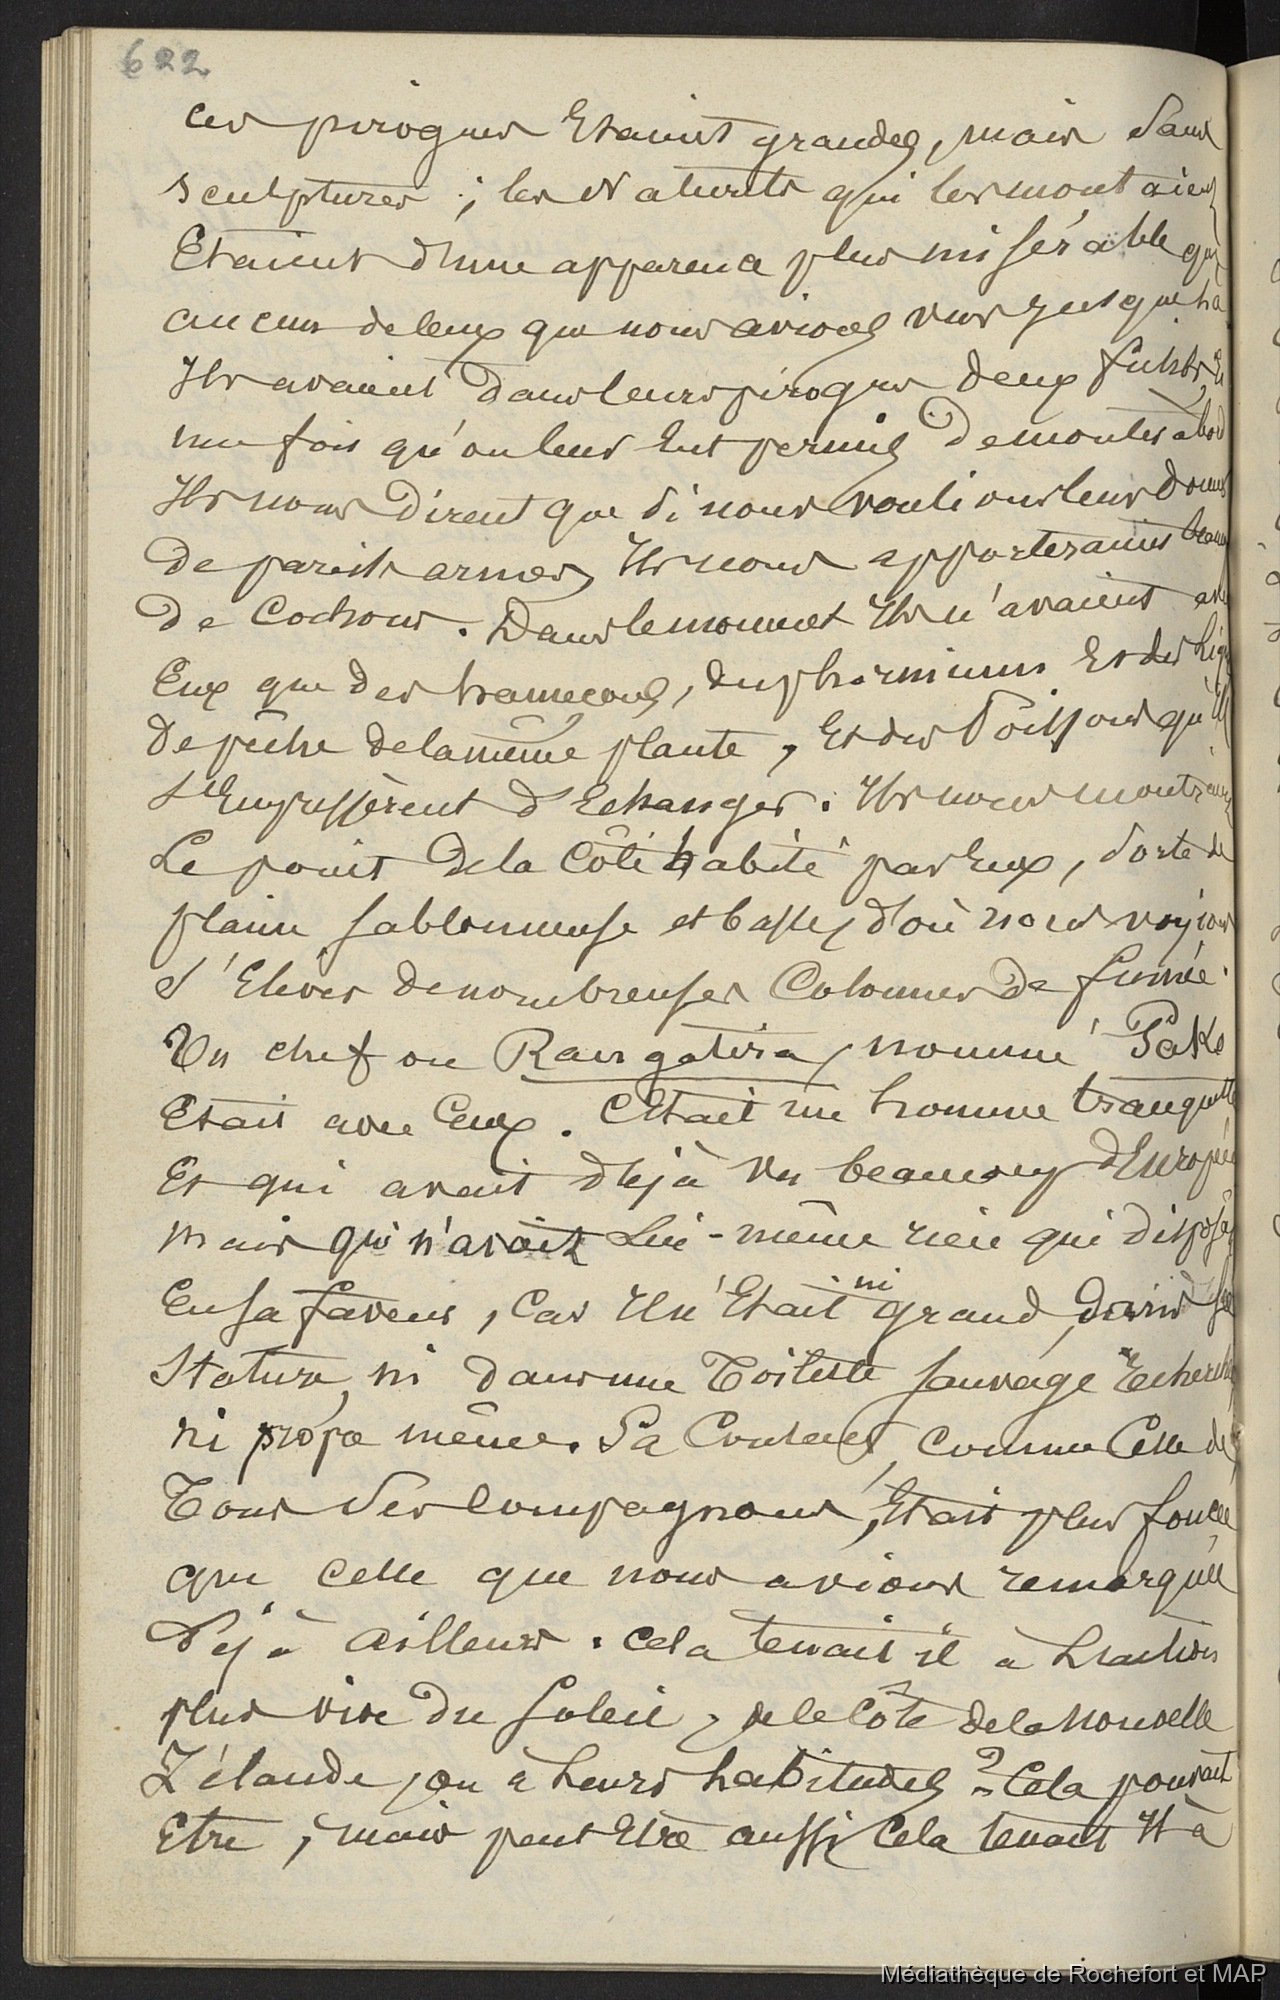 622
ces pirogues Etaient grandes, mais sans
sculptures ; les Naturels qui les montaient
Etaient d'une apparence plus misérable que
aucuns de ceux que nous avions vus jusque là
Ils avaient dans leurs pirogues deux fusils, Et
une fois qu'on leur Eut permis De monter à bord
Ils nous Dirent que si nous voulions leur donner
De pareils armes, Ils nous apporteraient beaucoup
De Cochons. Dans le moment Ils n'avaient avec
Eux que des hameçons, du phormium Et des lignes
De pêche de la même plante, Et des Poissons qu'Ils
s'Empressèrent d'Echanger. Ils nous montraient
Le point De la Côte habité par Eux, sorte de
plaine sablonneuse et basse, d'où nous voyions
s'Elever de nombreuses Colonnes De fumée.
Un chef ou Rangatira, nommé Pako
Etait avec Eux. C'Etait un homme tranquille
Et qui avait déjà vu beaucoup d'Européens
mais qui n'avait Lui-même rien qui disposât
En sa faveur, Car Il n'Etait ni grand dans sa
Stature, ni dans une Toilette sauvage Recherchée
ni propre même. Sa Couleur, comme Celle de
Tous Ses Compagnons, Etait plus foncée
que celle que nous avions remarquée
Déjà ailleurs. Cela tenait il à l'action
plus vive Du Soleil, de la Côte de la Nouvelle
Zélande, ou à Leurs habitudes ? - Cela pouvait
Etre ; mais peut Etre aussi Cela tenait Il à
Médiathèque de Rochefort et MAP